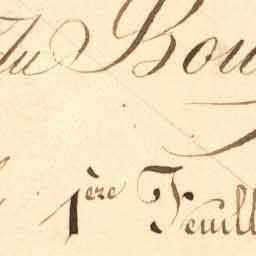 du Bou
1ère Feuill